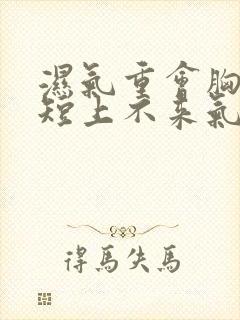 濕氣重會胸
短上不来氣
得馬失馬